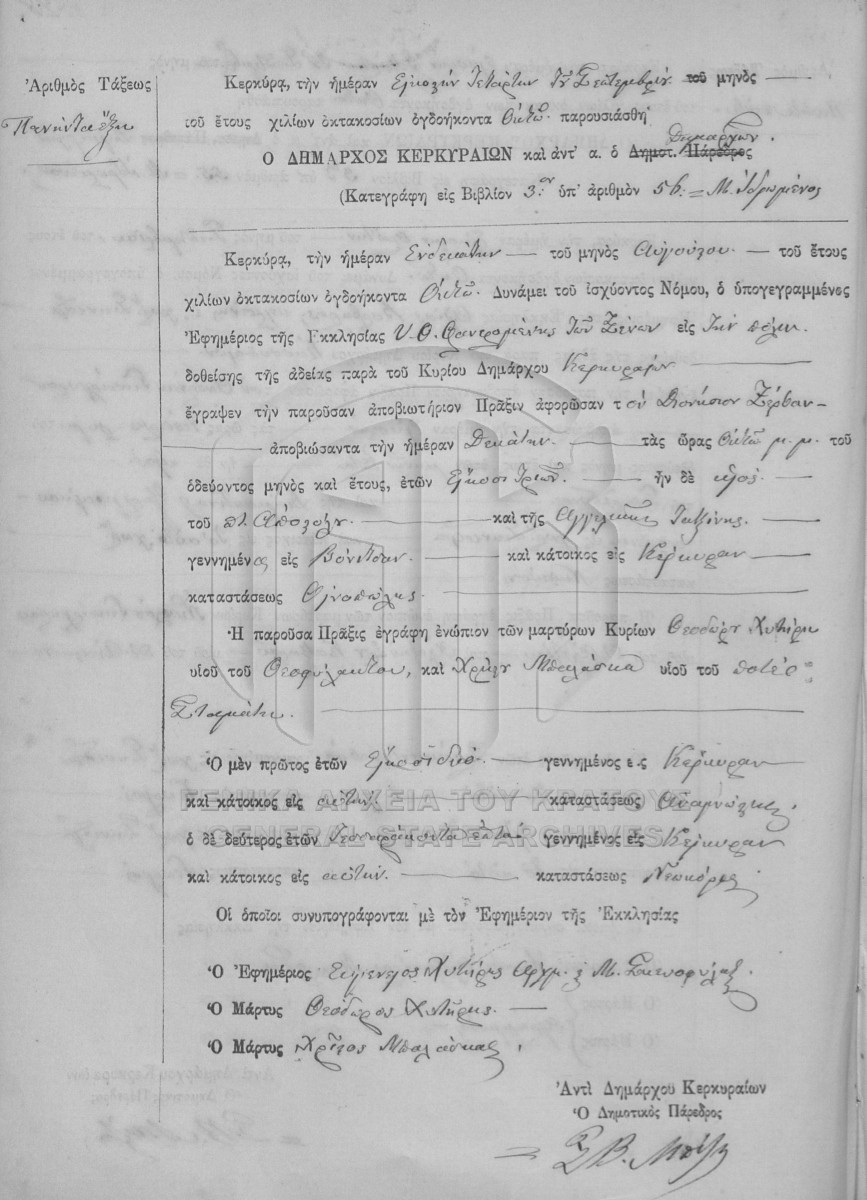 Ἀριθμὸς Τάξεως
Πενήντα ἕξη
Κερκύρα, τὴν ἡμέραν Εἰκοστὴν Τετάρτην Σεπτεμβρίου τοῦ μηνὸς
τοῦ ἔτους χιλίων ὀκτακοσίων ὀγδοήκοντα Ὀκτὼ παρουσιάσθη
Δημαρχῶν.
Ο ΔΗΜΑΡΧΟΣ ΚΕΡΚΥΡΑΙΩΝ καὶ ἀντ' α. ὁ Δημοτ. Πάρεδρος
(Κατεγράφη εἰς Βιβλίον 3.ον ὑπ' ἀριθμὸν 56. = Μ. Ἰδρωμένος
Κερκύρα, τὴν ἡμέραν Ἑνδεκάτην τοῦ μηνὸς Αὐγούστου τοῦ ἔτους
χιλίων ὀκτακοσίων ὀγδοήκοντα Ὀκτὼ. Δυνάμει τοῦ ἰσχύοντος Νόμου, ὁ ὑπογεγραμμένος
Ἐφημέριος τῆς Εκκλησίας Υ. Θ. Φανερωμένης τῶν Ξένων εἰς τὴν πόλιν
δοθείσης τῆς ἀδείας παρὰ τοῦ Κυρίου Δημάρχου Κερκυραίων
ἔγραψεν τὴν παροῦσαν ἀποβιωτήριον Πρᾶξιν ἀφορῶσαν τὸν Διονύσιον Ζέρβαν
ἀποβιώσαντα τὴν ἡμέραν Δεκάτην. τὰς ὥρας Ὀκτὼ μ.μ. τοῦ
ὁδεύοντος μηνὸς καὶ ἔτους, ἐτῶν Εἴκοσι τριῶν. ἦν δὲ υἱὸς
τοῦ π. Ἀποστόλη καὶ τῆς Ἀγγελικῆς
γεννημένος εἰς Βόνιτσαν. καὶ κάτοικος εἰς Κέρκυραν
καταστάσεως Οἰνοπώλης.
Ἡ παροῦσα Πρᾶξις ἐγράφη ἐνώπιον τῶν μαρτύρων Κυρίων Θεοδώρου Χυτήρη
υἱοῦ τοῦ Θεοφυλάκτου, καὶ Χρήστου Μπαλάσκα υἱοῦ τοῦ ποτὲ
Σταμάτη.
Ὁ μὲν πρῶτος ἐτῶν Εἴκοσι δύο. γεννημένος ε.ς Κέρκυραν
καὶ κάτοικος εἰς αὐτήν. καταστάσεως
ὁ δὲ δεύτερος ἐτῶν Τεσσαράκοντα ἑπτά γεννημένος εἰς Κέρκυραν
καὶ κάτοικος εἰς αὐτήν. καταστάσεως Νεωκόρος
Οἱ ὁποῖοι συνυπογράφονται μὲ τὸν Ἐφημέριον τῆς Ἐκκλησίας
Ὁ Ἐφημέριος Χυτήρης Σκευοφύλαξ.
Ὁ Μάρτυς Θεόδωρος Χυτήρης
Ὁ Μάρτυς Χρῆστος Μπαλάσκας
Ἀντὶ Δημάρχου Κερκυραίων
Ὁ Δημοτικὸς Πάρεδρος
ΓΕΝΙΚΑ ΑΡΧΕΙΑ ΤΟΥ ΚΡΑΤΟΥΣ
GENERAL STATE ARCHIVES